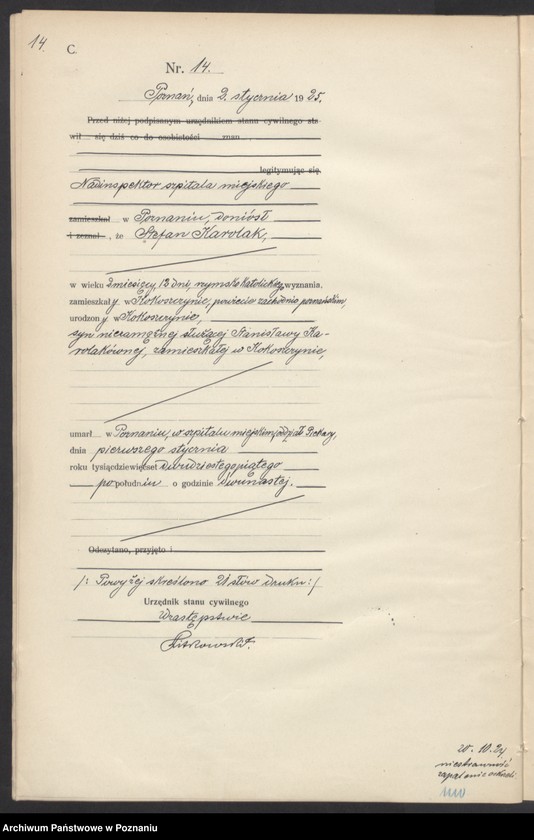 14.
C.
Nr. 14.
Poznań, dnia 2. stycznia 1925.
Przed niżej podpisanym urzędnikiem stanu cywilnego sta
wił się dziś co do osobistości znan
legitymując się.
Nadinspektor szpitala miejskiego
zamieszkał w Poznaniu, doniósł
i zeznał , że Stefan Karolak,
w wieku 2 miesięcy, 12 dni, rzymsko katolickiego wyznania,
zamieszkały w Kokoszczynie, powiecie zachodnio poznańskim,
urodzony w Kokoszczynie,
syn niezamężnej służącej Stanisławy Ka-
rolakównej, zamieszkałej w Kokoszczynie,
umarł w Poznaniu, w szpitalu miejskim, oddział Piekary,
dnia pierwszego stycznia
roku tysiąc dziewięćset dwudziestego piątego
po południu o godzinie dwunastej.
Odczytano, przyjęto i
/: Powyżej skreślono słów druku: /
Urzędnik stanu cywilnego
W zastępstwie
20. 10. 24
niestrawność
zapalenie
Archiwum Państwowe w Poznaniu